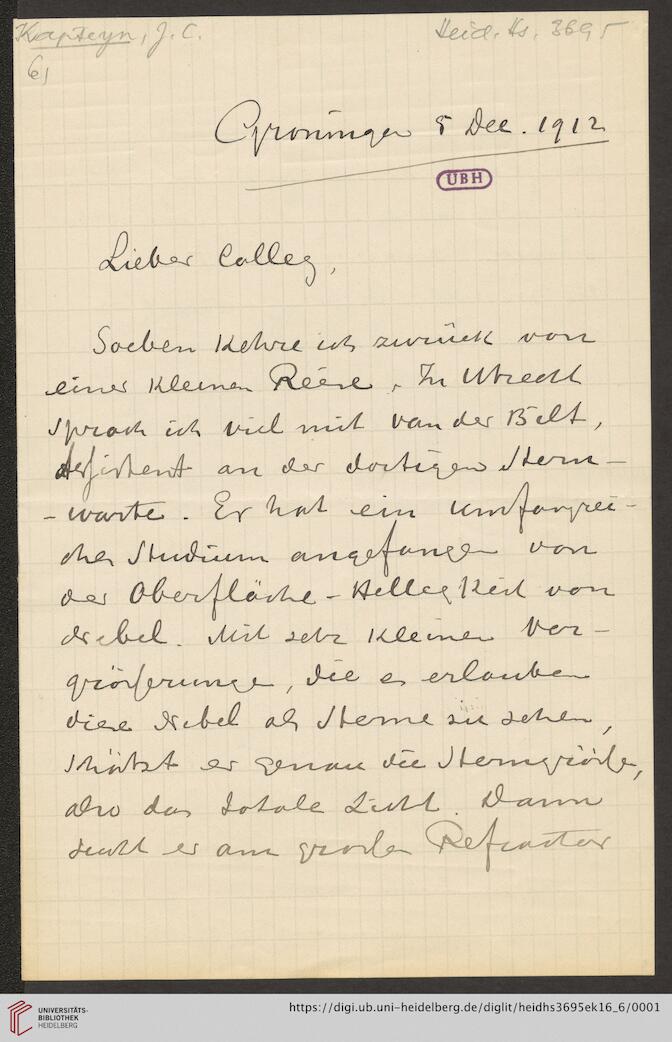 Kapteyn, J. C.
Heid. Hs. 3695
6,
Groningen 5 Dec. 1912
UBH
Lieber Colleg,
Soeben kehre ich zurück von
einer kleinen Reise. In Utrecht
sprach ich viel mit van der Bilt,
Assistent an der dortigen Stern-
-warte. Er hat ein umfangrei-
ches Studium angefangen von
der Oberfläche-Helligkeit von
Nebel. Mit sehr kleinen Ver-
grösserungen, die es erlauben
diese Nebel als Sterne zu sehen,
schätzt er genau die Sterngrösse,
also das totale Licht. Dann
sucht er am grossen Refractor
UNIVERSITÄTS-
BIBLIOTHEK
HEIDELBERG
https://digi.ub.uni-heidelberg.de/diglit/heidhs3695ek16_6/0001